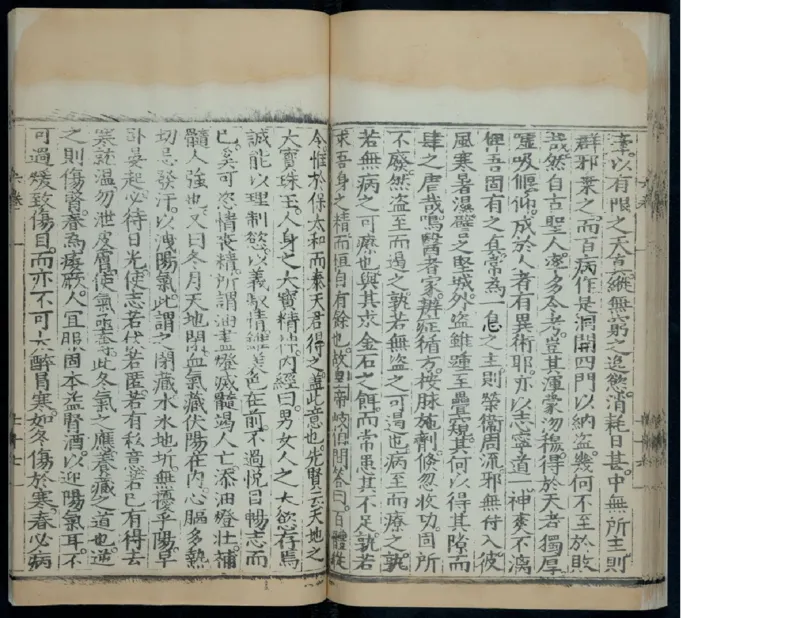 主以有限之天真縱無窮之逸慾消耗日甚中無所主則
群邪乘之而百病作是洞開四門以納盜幾何不至於敗
哉然自古聖人率多令考豈其渾蒙沕穆得於天者獨厚
噓吸偃仰成於人者有異術耶亦以志寧道一神爽不漓
俾吾固有之息常為一息之主則榮衛周流邪無付入彼
風寒暑濕譬之堅城外盜雖踵至疊窺其何以得其隙而
肆之虐哉嗚醫者家辨症循方按脉施劑倏忽收功固所
不廢然盜至而遏之孰若無盜之可遏也病至而療之孰
若無病之可療也與其求金石之餌而常患其不足孰若
求吾身之精而恒自有餘也故黃帝岐伯問答曰百體從
令惟於保太和而泰天君得之蓋此意也先賢云天地之
大寶珠玉人身之大寶精神內經曰男女人之大慾存焉
誠能以理制慾以義馭情雖美色在前不過悅目暢志而
已奚可恣情喪精所謂油盡燈滅髓竭人亡添油燈壯補
髓人強也又曰冬月天地閉血氣藏伏陽在內心膈多熱
切忌發汗以洩陽氣此謂之閉藏水氷地坼無擾乎陽早
臥晏起必待日光使志若伏若匿若有私意若已有得去
寒就溫勿泄皮膚使氣亟奪此冬氣之應養藏之道也逆
之則傷腎春為痿厥人宜服固本益腎酒以迎陽氣耳不
可過煖致傷目而亦不可大醉冒寒如冬傷於寒春必病